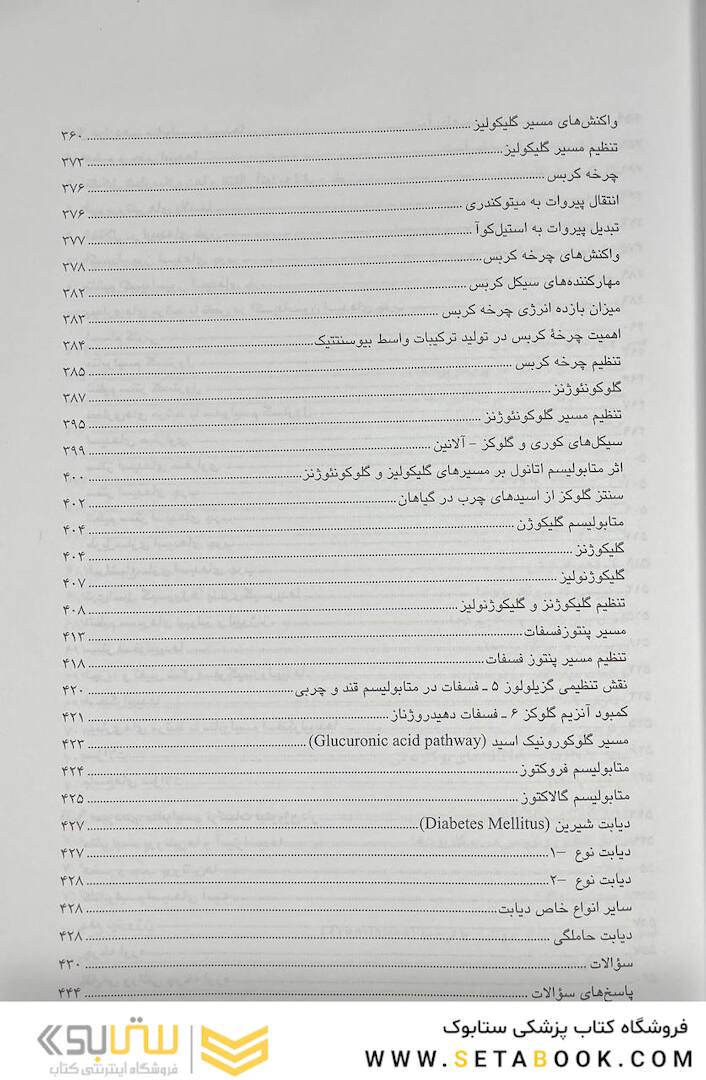 واکنش‌های مسیر گلیکولیز ۳۶۰
تنظیم مسیر گلیکولیز ۳۷۳
چرخه کربس ۳۷۶
انتقال پیروات به میتوکندری ۳۷۶
تبدیل پیروات به استیل‌کوآ ۳۷۷
واکنش‌های چرخه کربس ۳۷۸
مهارکننده‌های سیکل کربس ۳۸۲
میزان بازده انرژی چرخه کربس ۳۸۳
اهمیت چرخهٔ کربس در تولید ترکیبات واسط بیوسنتتیک ۳۸۴
تنظیم چرخه کربس ۳۸۵
گلوکونئوژنز ۳۸۷
تنظیم مسیر گلوکونئوژنز ۳۹۵
سیکل‌های کوری و گلوکز - آلانین ۳۹۹
اثر متابولیسم اتانول بر مسیرهای گلیکولیز و گلوکونئوژنز ۴۰۰
سنتز گلوکز از اسیدهای چرب در گیاهان ۴۰۲
متابولیسم گلیکوژن ۴۰۴
گلیکوژنز ۴۰۴
گلیکوژنولیز ۴۰۷
تنظیم گلیکوژنز و گلیکوژنولیز ۴۰۸
مسیر پنتوزفسفات ۴۱۳
تنظیم مسیر پنتوز فسفات ۴۱۸
نقش تنظیمی گزیلولوز ۵ ـ فسفات در متابولیسم قند و چربی ۴۲۰
کمبود آنزیم گلوکز ۶ ـ فسفات دهیدروژناز ۴۲۱
مسیر گلوکورونیک اسید (Glucuronic acid pathway) ۴۲۳
متابولیسم فروکتوز ۴۲۴
متابولیسم گالاکتوز ۴۲۵
دیابت شیرین (Diabetes Mellitus) ۴۲۷
دیابت نوع –۱ ۴۲۷
دیابت نوع –۲ ۴۲۸
سایر انواع خاص دیابت ۴۲۸
دیابت حاملگی ۴۲۸
سؤالات ۴۳۰
پاسخ‌های سؤالات ۴۴۴
فروشگاه کتاب پزشکی ستابوک
WWW.SETABOOK.COM
ستابوک
فروشگاه اینترنتی کتاب